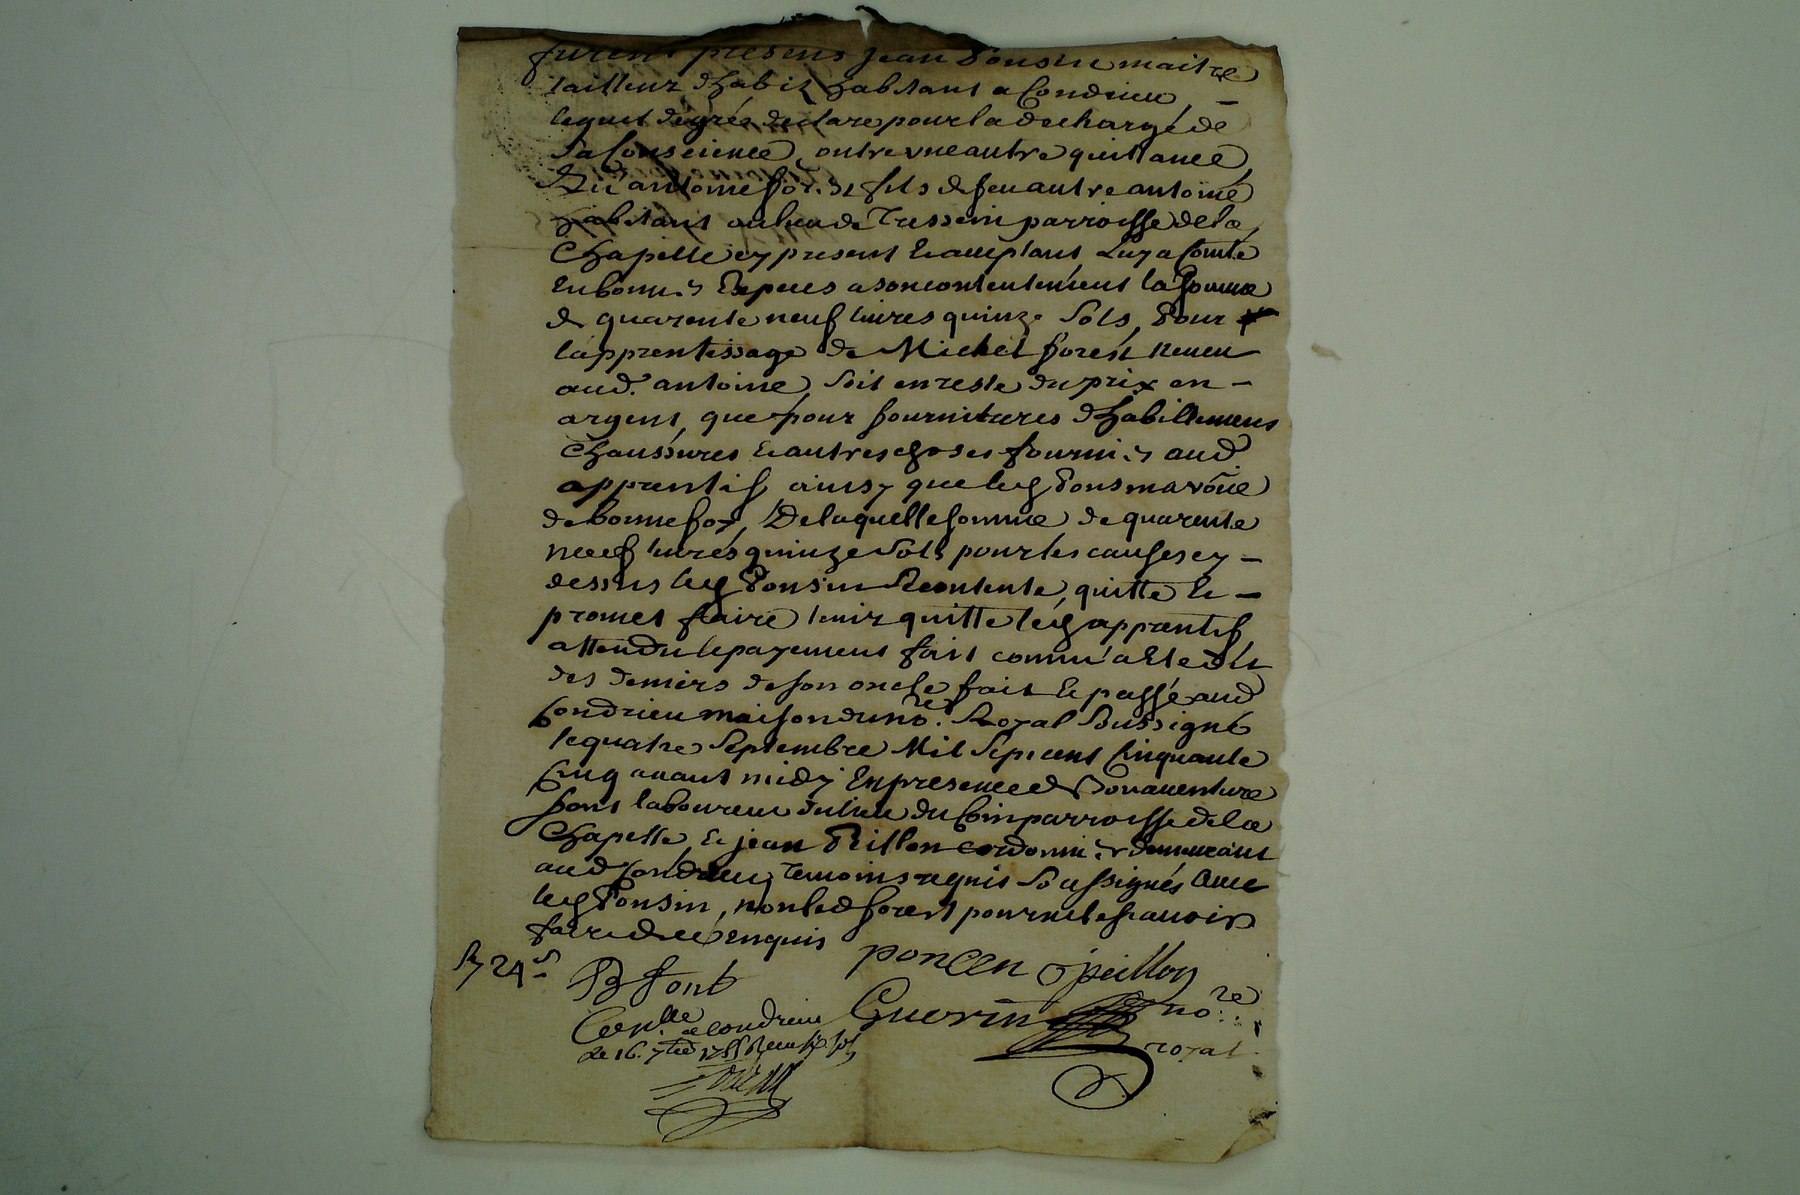 furent presens jean Ponsin maitre
tailleur dhabit habitant a Condrieu,
lequel de gré a declare pour la decharge de
sa Conscience, outre une autre quittance
qu'antoine forest fils de feu autre antoine
habitant au lieu de Tressein parroisse de la
Chapelle cy present Et acceptant Luy a Comté
En bonnes Especes a son contentement la somme
de quarente neuf livres quinze sols, Pour
l'apprentissage de Michel forest neveu
aud. antoine, soit en reste du prix en
argent, que pour fournitures dhabillemens
Chaussures Et autres choses fournies aud
apprentif ainsy que led Ponsin avoüe
de bonne foy, De laquelle somme de quarente
neuf livres quinze sols pour les causes cy
dessus led Ponsin se contente, quitte Et
promet faire tenir quitte led apprentif,
attendu le payement fait comm'a Eté dit
des deniers de son oncle, fait Et passé aud
Condrieu maison du no.re Royal soussigné
le quatre septembre Mil sept cent Cinquante
Cinq avant midy En presence de Bonaventure
font laboureur du lieu du Coin parroisse de la
Chapelle, Et jean Pillon cordonnier demeurant
aud Condrieu, temoins requis soussignés avec
led Ponsin, non led forest pour ne le scavoir
faire de ce enquis
R 24 s
B font
poncen
j peillon
Guerin no.re
royal
Con.lle a Condrieu
le 16. 7bre 1755